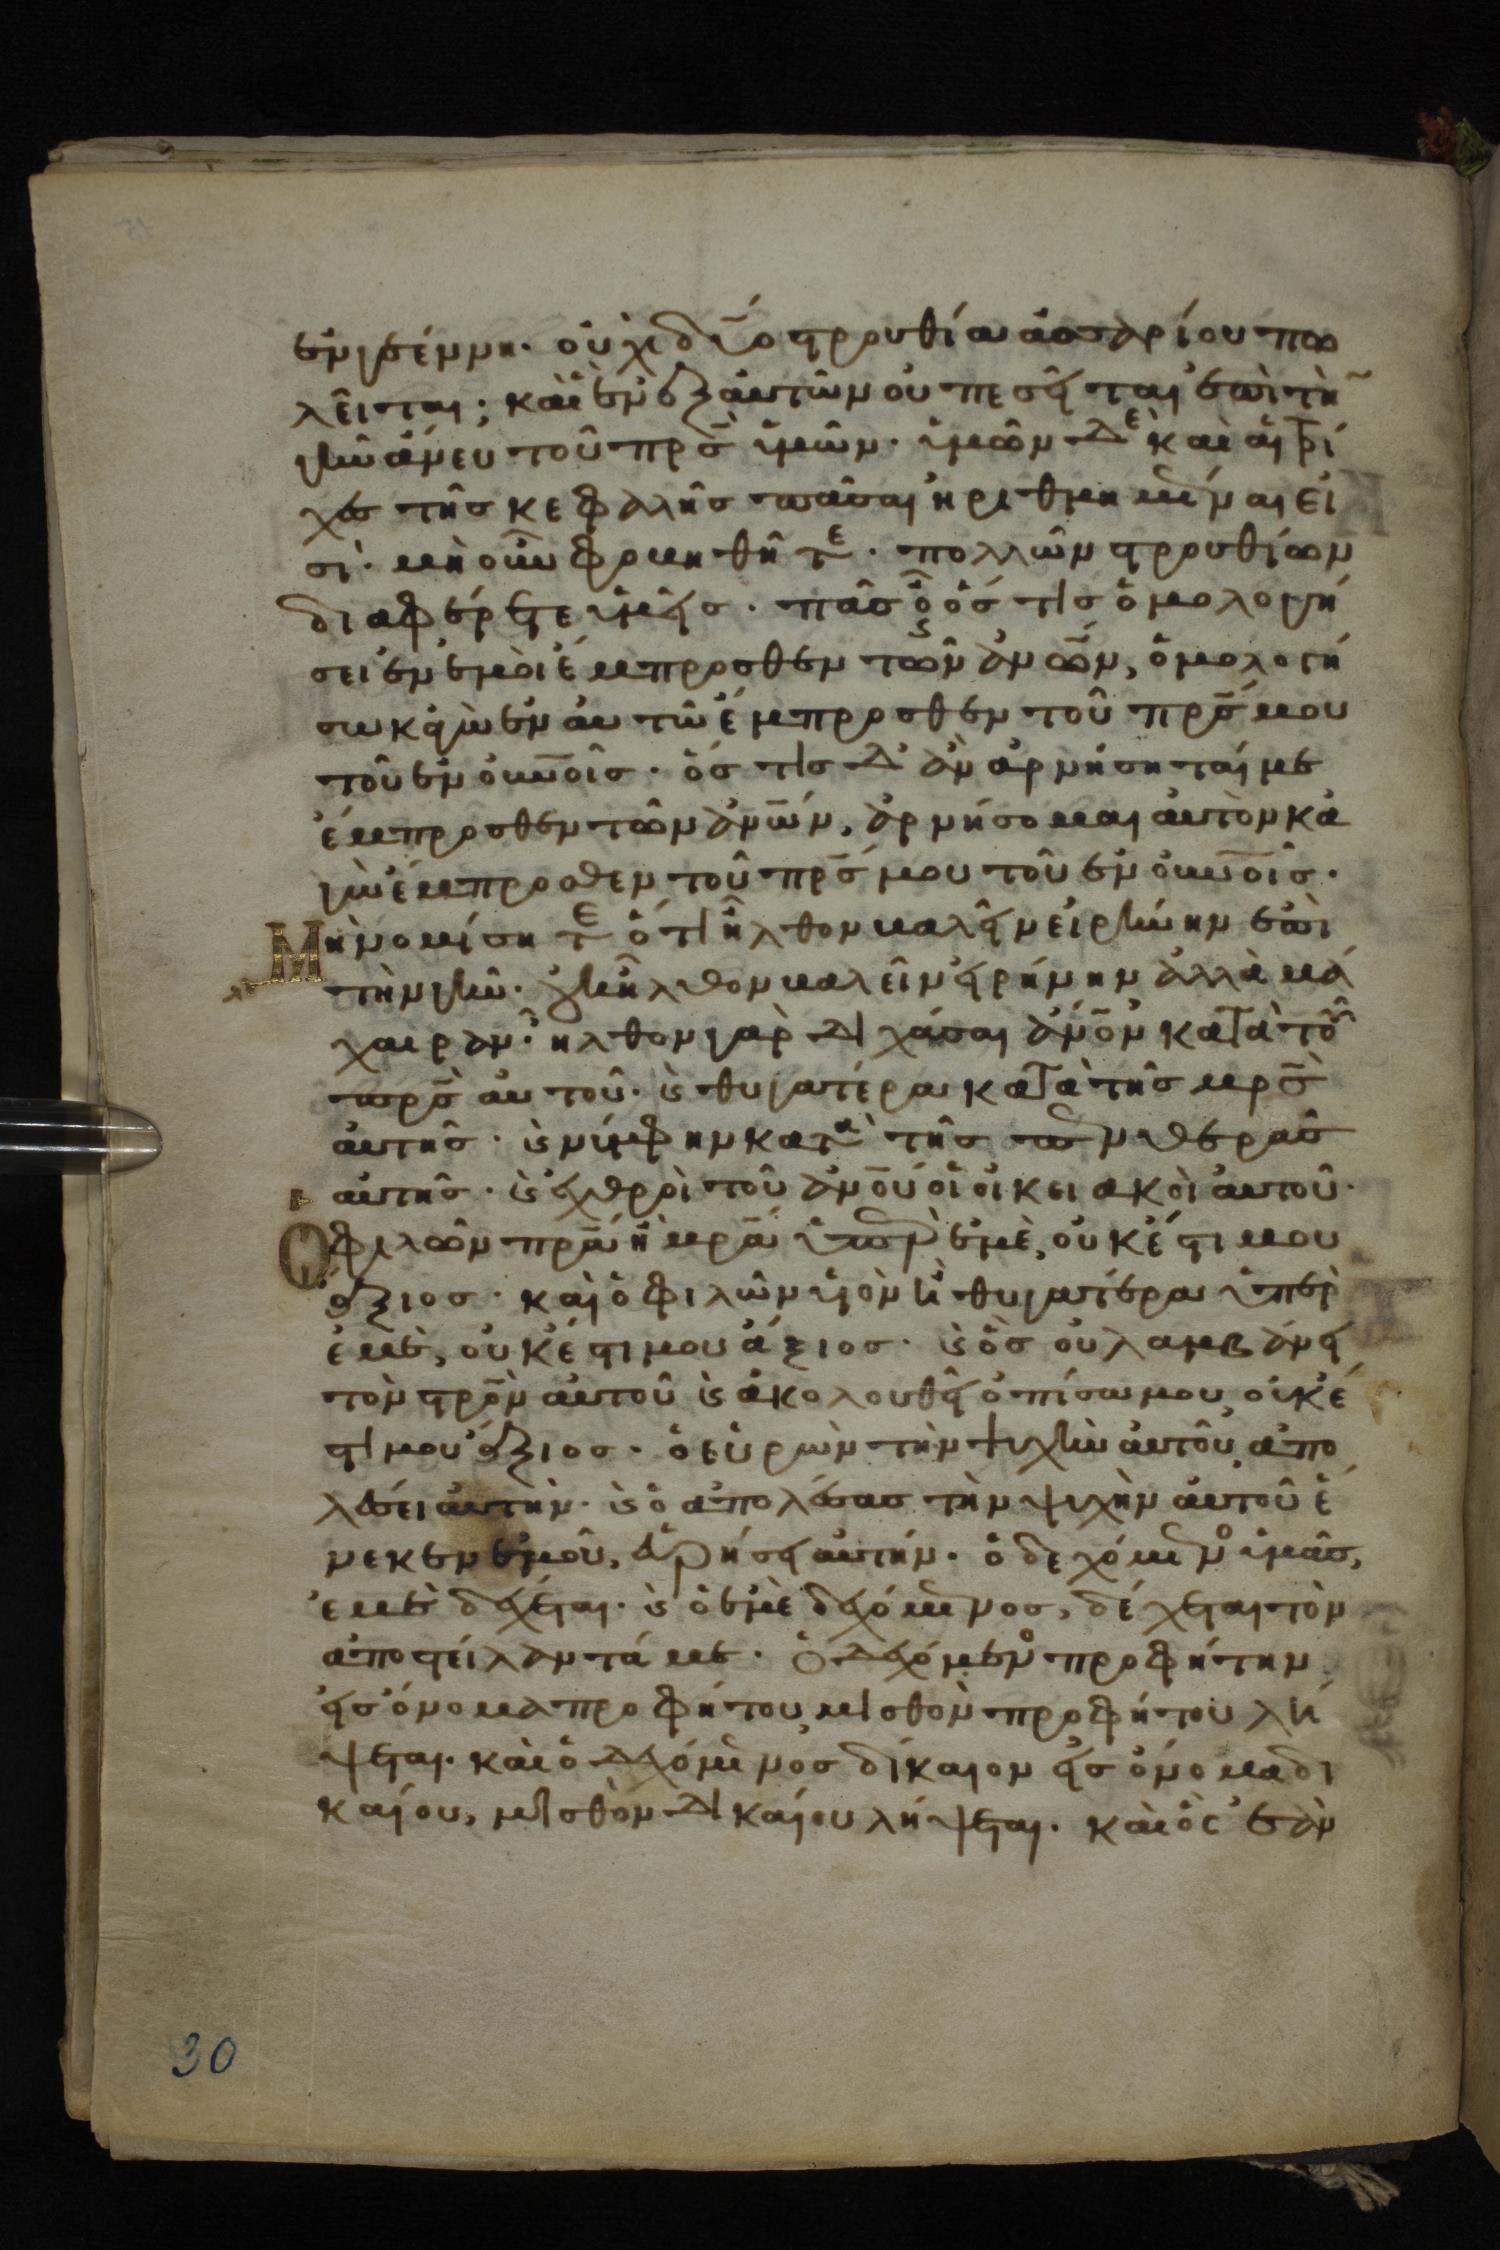 ἐν γεέννη. οὐχὶ δύο στρουθία ἀσσαρίου πω
λεῖται; καὶ ἓν ἐξ αὐτῶν οὐ πεσεῖται ἐπὶ τὴ
γῆν ἄνευ τοῦ πρ̅ς ὑμῶν. ὑμῶν δὲ καὶ αἱ τρί
χες τῆς κεφαλῆς πᾶσαι ἠριθμημέναι εἰ
σί. μὴ οὖν φοβηθῆτε. πολλῶν στρουθίων
διαφέρετε ὑμεῖς. πᾶς οὖν ὅστις ὁμολογή
σει ἐν ἐμοὶ ἔμπροσθεν τῶν ἀν̅ων, ὁμολογή
σω κἀγὼ ἐν αὐτῷ ἔμπροσθεν τοῦ πρ̅ς μου
τοῦ ἐν οὐν̅οις. ὅστις δ' ἂν ἀρνήσηταί με
ἔμπροσθεν τῶν ἀν̅ων, ἀρνήσομαι αὐτὸν κα
γὼ ἔμπροσθεν τοῦ πρ̅ς μου τοῦ ἐν οὐν̅οις.
Μὴ νομίσητε ὅτι ἦλθον βαλεῖν εἰρήνην ἐπὶ
τὴν γῆν. οὐκ ἦλθον βαλεῖν εἰρήνην ἀλλὰ μά
χαιραν. ἦλθον γὰρ διχάσαι ἀν̅ον κατὰ τοῦ
πρ̅ς αὐτοῦ. ϗ θυγατέρα κατὰ τῆς μρ̅ς
αὐτῆς. ϗ νύμφην κατὰ τῆς πενθερᾶς
αὐτῆς. ϗ ἐχθροὶ τοῦ ἀν̅ου οἱ οἰκειακοὶ αὐτοῦ.
Ὁ φιλῶν πρ̅α ἢ μρ̅α ὑπὲρ ἐμὲ, οὐκ έστι μου
ἄξιος. καὶ ὁ φιλῶν υἱὸν ἢ θυγατέρα ὑπὲρ
ἐμὲ, οὐκ έστι μου ἄξιος. ϗ ὃς οὐ λαμβάνει
τὸν στρ̅ον αὐτοῦ ϗ ἀκολουθεῖ ὀπίσω μου, οὐκ έ
στι μου ἄξιος. ὁ εὑρὼν τὴν ψυχὴν αὐτοῦ, ἀπο
λέσει αὐτήν. ϗ ὁ ἀπολέσας τὴν ψυχὴν αὐτοῦ ἕ
νεκεν ἐμοῦ, εὑρήσει αὐτήν. ὁ δεχόμενος ὑμᾶς,
ἐμὲ δέχεται. ϗ ὁ ἐμὲ δεχόμενος, δέχεται τὸν
ἀποστείλαντά με. ὁ δεχόμενος προφήτην
εἰς ὄνομα προφήτου, μισθὸν προφήτου λή
ψεται. καὶ ὁ δεχόμενος δίκαιον εἰς ὄνομα δι
καίου, μισθὸν δικαίου λήψεται. καὶ ὃς ἐὰν
30